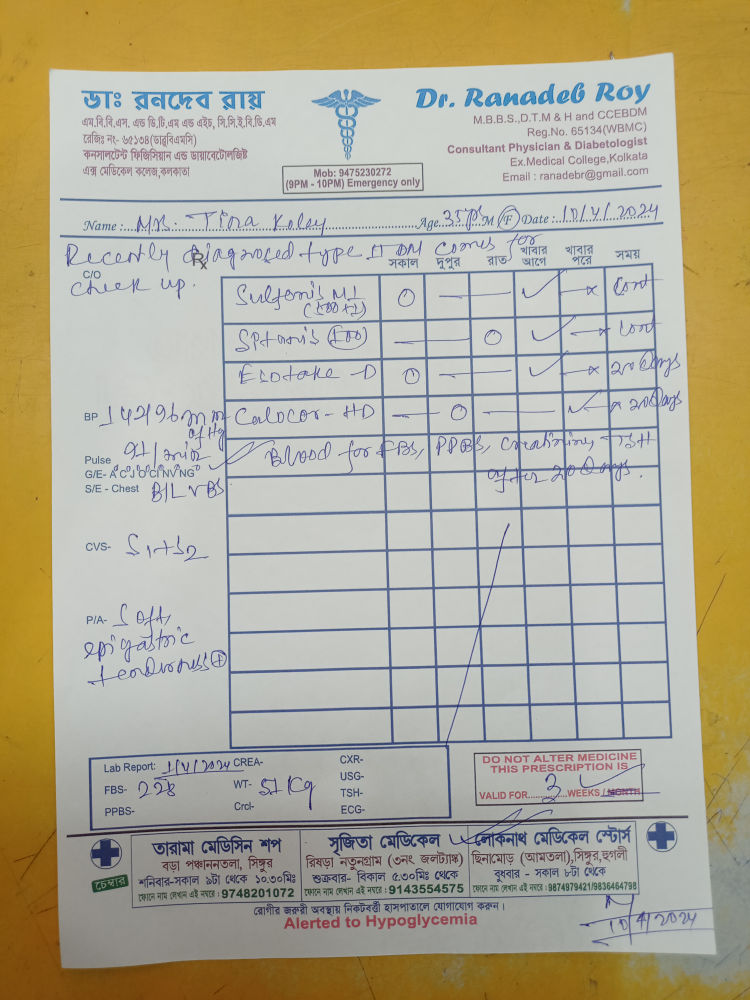 ডাঃ রনদেব রায়
এম.বি.বি.এস. এন্ড ডি.টি.এম এন্ড এইচ, সি.সি.ই.বি.ডি.এম
রেজিঃ নং- ৬৫১৩৪(ডাব্লুবিএমসি)
কনসালটেন্ট ফিজিসিয়ান এন্ড ডায়াবেটোলজিষ্ট
এক্স মেডিকেল কলেজ,কলকাতা
Mob: 9475230272
(9PM - 10PM) Emergency only
Dr. Ranadeb Roy
M.B.B.S.,D.T.M & H and CCEBDM
Reg.No. 65134(WBMC)
Consultant Physician & Diabetologist
Ex.Medical College,Kolkata
Email : ranadebr@gmail.com
Name :.. Mrs. Tina Koley Age.. 35 yrs M F Date : 10/4/2024
Recently Diagnosed type II DM comes for
check up.
Rx
C/O
সকাল দুপুর রাত খাবার আগে খাবার পরে সময়
(500+1) Cont
(500) Cont
Esotake - D 20 Days
Calocor - HD 20 Days
Blood for FBS, PPBS, Creatinine, TSH
after 20 Days.
BP 142/96 mm of Hg
Pulse 91/min
G/E- A C J O C N V N G
S/E - Chest B/L VBS
CVS- S1+S2
P/A- Soft,
epigastric
tenderness +
Lab Report: 1/4/2024 CREA- CXR-
FBS- 228 WT- 51 Kg USG-
TSH-
PPBS- Crcl- ECG-
DO NOT ALTER MEDICINE
THIS PRESCRIPTION IS
VALID FOR 3 WEEKS / MONTH
চেম্বার
তারামা মেডিসিন শপ
বড়া পঞ্চাননতলা, সিঙ্গুর
শনিবার-সকাল ৯টা থেকে ১০.৩০মিঃ
ফোনে নাম লেখান এই নম্বরে : 9748201072
সৃজিতা মেডিকেল
রিষড়া নতুনগ্রাম (৩নং জলট্যাঙ্ক)
শুক্রবার- বিকাল ৫.৩০মিঃ থেকে
ফোনে নাম লেখান এই নম্বরে : 9143554575
লোকনাথ মেডিকেল স্টোর্স
ছিনামোড় (আমতলা),সিঙ্গুর,হুগলী
বুধবার - সকাল ৮টা থেকে
ফোনে নাম লেখান এই নম্বরে :9874979421/9836464798
রোগীর জরুরী অবস্থায় নিকটবর্তী হাসপাতালে যোগাযোগ করুন।
Alerted to Hypoglycemia
10/4/2024